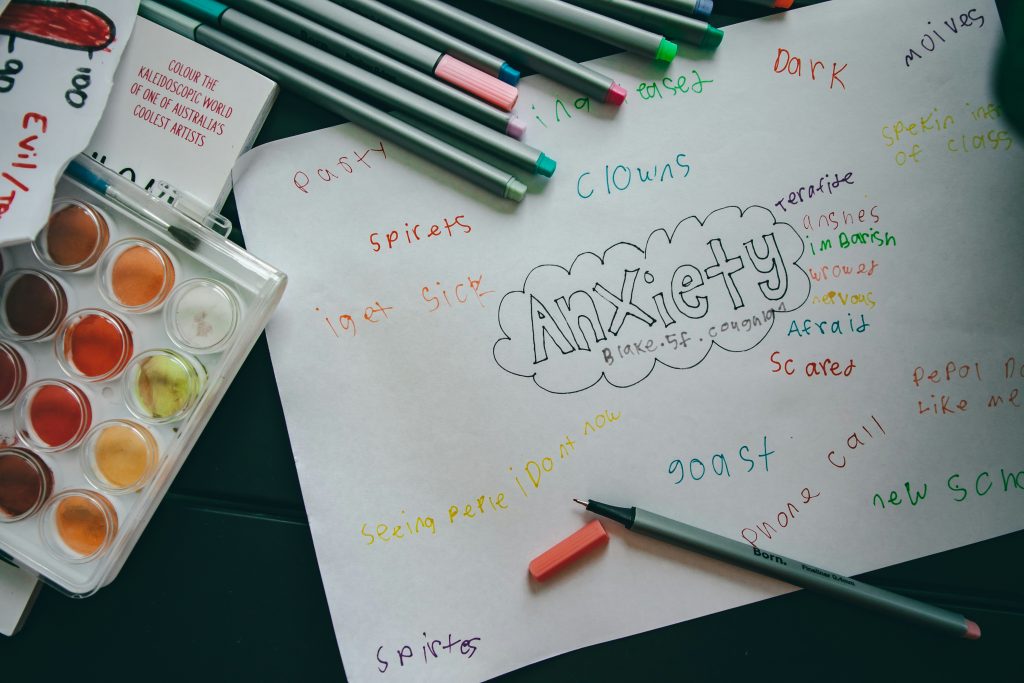 COLOUR THE
KALEIDOSCOPIC WORLD
OF ONE OF AUSTRALIA'S
COOLEST ARTISTS
Evil/
moives
Dark
ing easet
spekin
of class
party
clowns
spirets
iget sick
Anxiety
Blake.sf.
Terafide
anshes
imBarish
wrowet
nervous
Afraid
scared
pepol
Like me
seeing peple iDont now
goast
phone call
new
spirtes
Born.
Fineliner 0.4mm